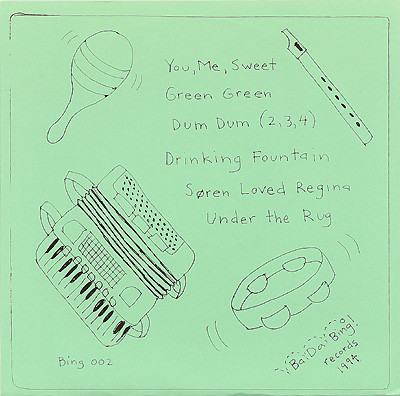 You, Me, Sweet
Green Green
Dum Dum (2,3,4)
Drinking Fountain
Søren Loved Regina
Under the Rug
Bing 002
¡Ba! Da! Bing!
records
1994